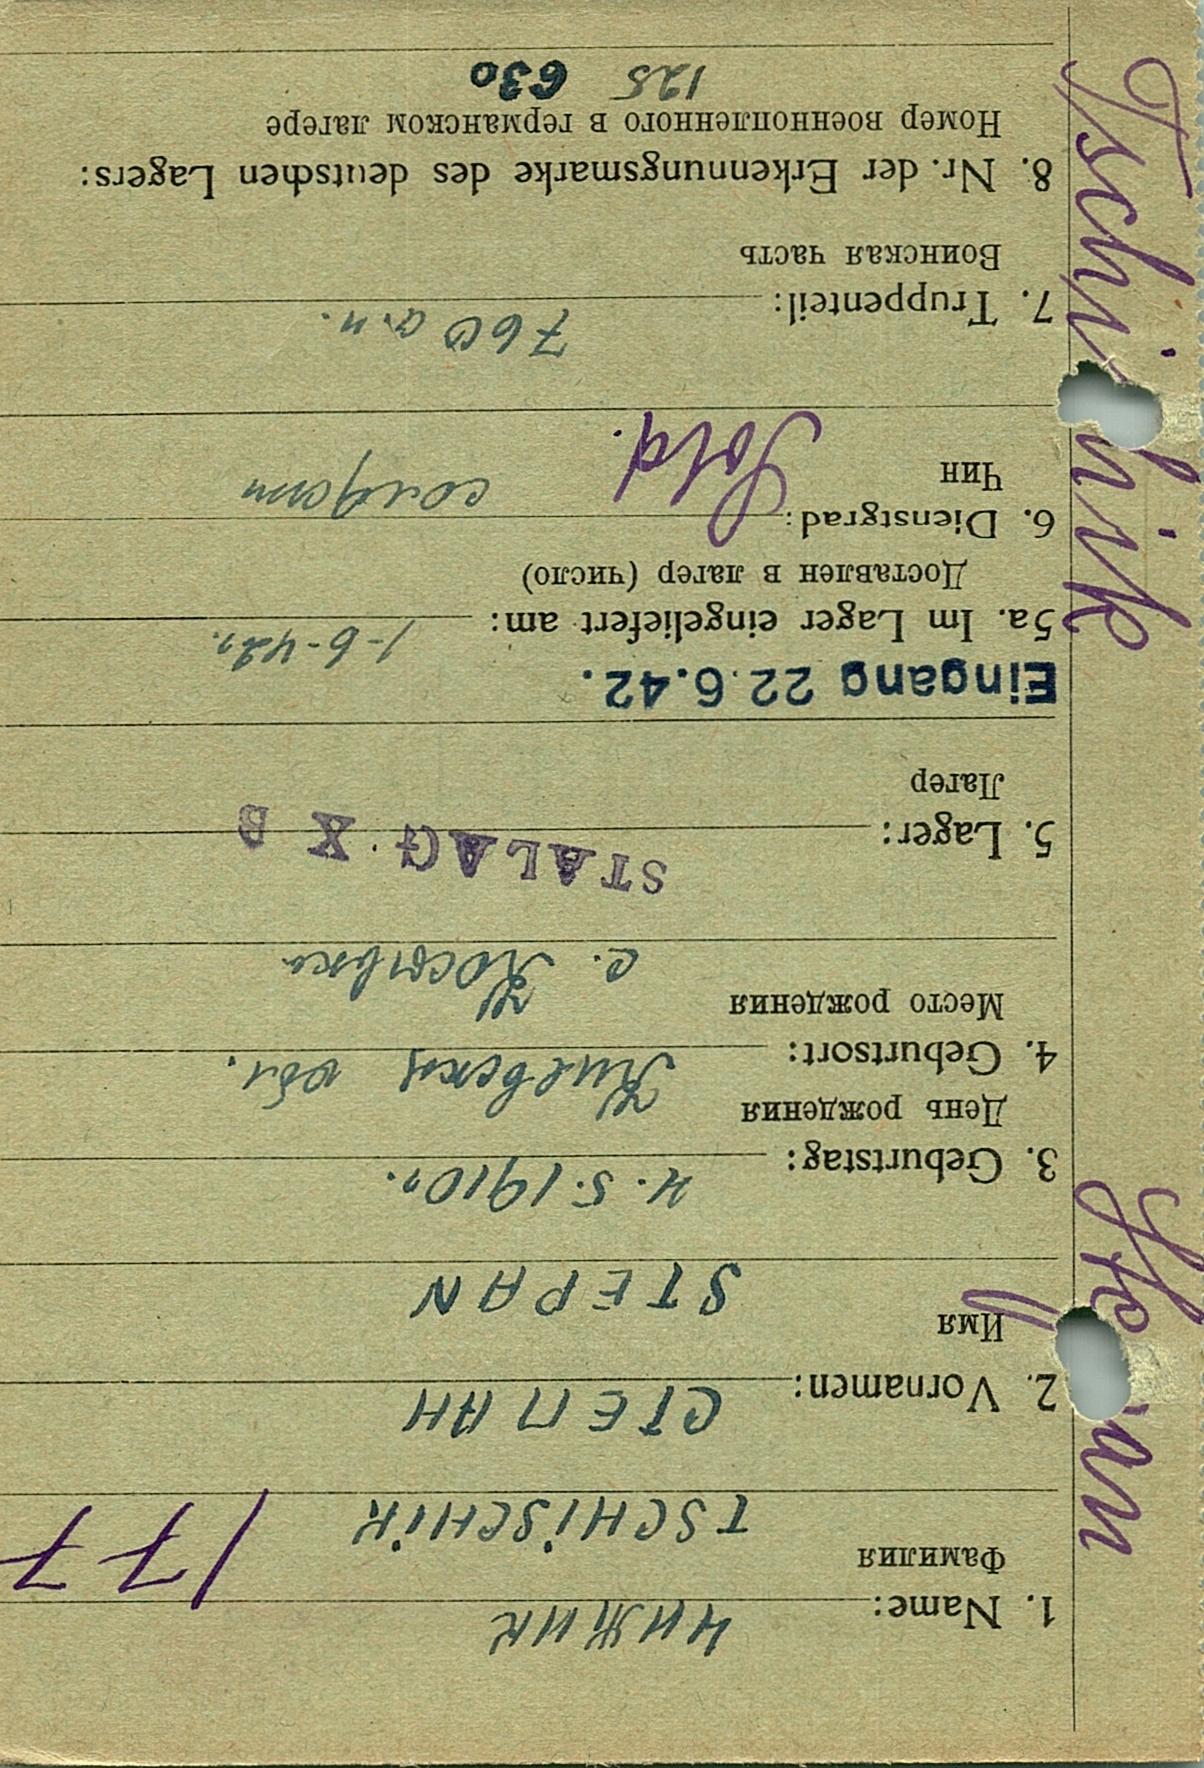 1. Name: ЧИЖИК
Фамилия
TSCHiSCHiK 177
2. Vornamen: СТЕПАН
Имя
STEPAN
3. Geburtstag: 4.5.1910г.
День рождения
4. Geburtsort: Киевская обл.
Место рождения
с.
STALAG X B
5. Lager:
Лагер
Eingang 22.6.42.
5a. Im Lager eingeliefert am: 1-6-42г.
Доставлен в лагер (число)
6. Dienstgrad: солдат
Чин Sold.
7. Truppenteil: 760 а.п.
Воинская часть
8. Nr. der Erkennungsmarke des deutschen Lagers:
Номер военнопленного в германском лагере
125 630